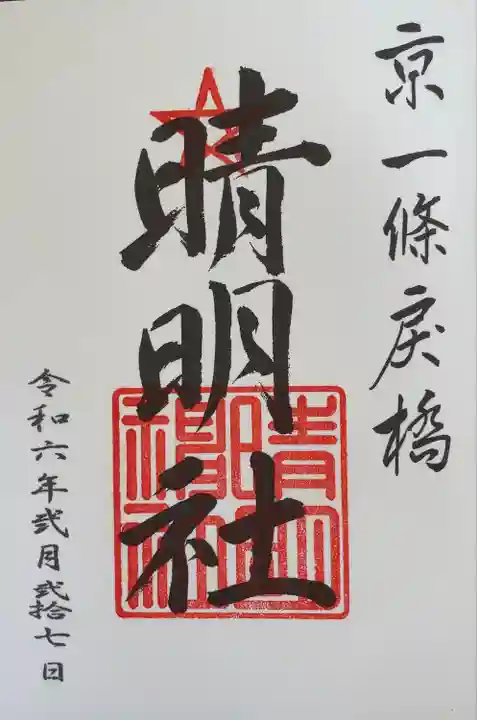 京一條戻橋
晴明社
令和六年弐月弐拾七日